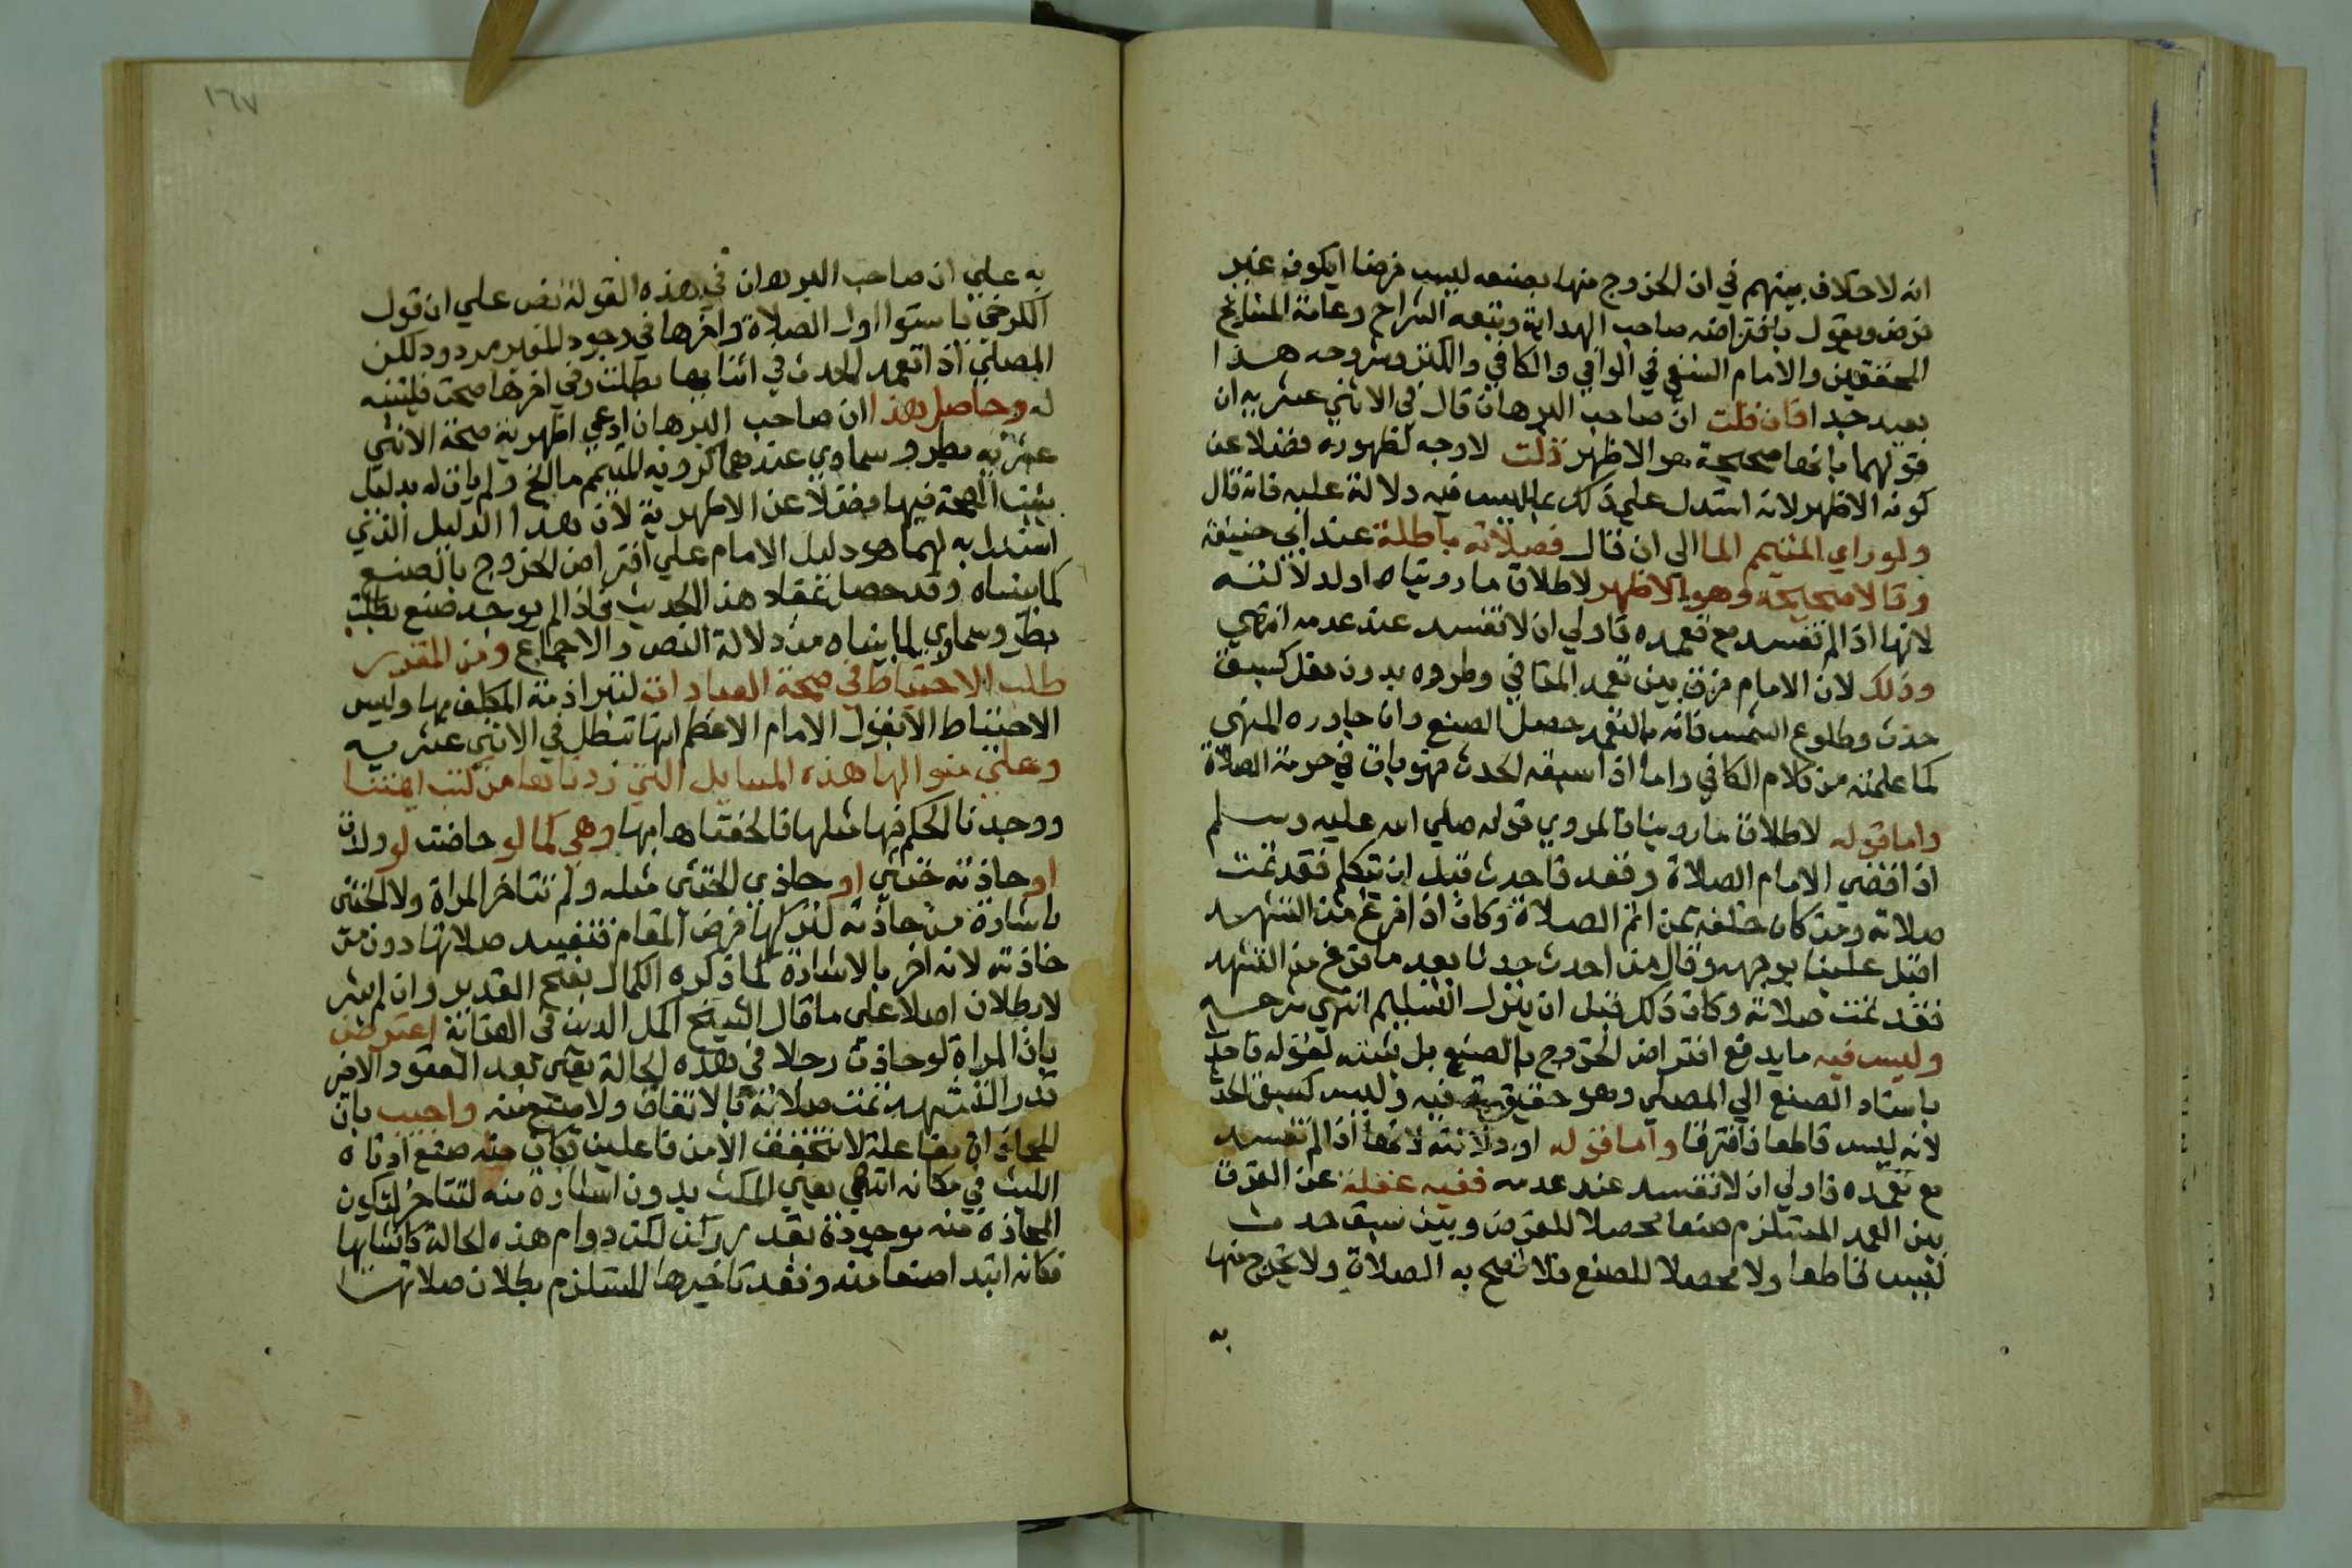 انه لاخلاف بينهم في ان الخروج منها بصنعه ليس فرضا ايكون غير
فرض ويقول بافتراضه صاحب الهداية وتبعه الشراح وعامة المشايخ
المحققين والامام النسفي في الوافي والكافي والكنز وشروحه هذا
بعيد جدا فان قلت ان صاحب البرهان قال في الاثني عشرية ان
قولهما بانها صحيحة هو الاظهر قلت لاوجه لظهوره فضلا عن
كونه الاظهر لانه استدل علي ذلك بما ليس فيه دلالة عليه فانه قال
ولو راي المتيمم الما الي ان قال فصلاته باطلة عند ابي حنيفة
وقالا صحيحة وهو الاظهر لاطلاق ما رويناه اولدلالته
لانها اذا لم تفسد مع تعمده فاولي ان لا تفسد عند عدمه انتهي
وذلك لان الامام فرق بين تعمد المنافي وطروه بدون فعل كسبق
حدث وطلوع الشمس فانه بالتعمد حصل الصنع وان جاوره المنهي
كما علمته من كلام الكافي واما اذا سبقه الحدث فهو باق في حرمة الصلاة
واما قوله لاطلاق ما روينا فالمروي قوله صلي الله عليه وسلم
اذا قضي الامام الصلاة وقعد فاحدث قبل ان يتكلم فقد تمت
صلاته ومن كان خلفه ممن اتم الصلاة وكان اذا فرغ من التشهد
اقبل علينا بوجهه وقال من احدث حدثا بعد ما فرغ من التشهد
فقد تمت صلاته وكان ذلك قبل ان ينزل التسليم انتهي شرحه
وليس فيه ما يدفع افتراض الخروج بالصنع بل يثبته لقوله فاحدث
باسناد الصنع الي المصلي وهو حقيقة فيه وليس كسبق الحدث
لانه ليس قاطعا فافترقا واما قوله اودلالته لانها اذا لم تفسد
مع تعمده فاولي ان لا تفسد عند عدمه ففيه غفلة عن الفرق
بين العمد المستلزم صنعا محصلا للفرض وبين سبق حدث
ليس قاطعا ولا محصلا للصنع فلا تصح به الصلاة ولا يخرج منها
به
١٦٧
به علي ان صاحب البرهان في هذه القولة نص علي ان قول
الكرخي باستوا اول الصلاة واخرها في وجود المغير مردود لكن
المصلي اذا تعمد الحدث في اثنايها بطلت وفي اخرها صحت فليتنبه
له وحاصل هذا ان صاحب البرهان ادعي اظهرية صحة الاثني
عشرية بطرو سماوي عندهما كرويه المتيمم ما الخ ولم يات له بدليل
يثبت الصحة فيها فضلا عن الاظهرية لان هذا الدليل الذي
استدل به لهما هو دليل الامام علي افتراض الخروج بالصنع
كما بيناه وقد حصل بمفاد هذا الحديث فاذا لم يوجد صنع بطلت
بطرو سماوي لما بيناه من دلالة النص والاجماع ومن المقرر
طلب الاحتياط في صحة العبادات لتبرا ذمة المكلف بها وليس
الاحتياط الا بقول الامام الاعظم انها تبطل في الاثني عشرية
وعلي منوالها هذه المسايل التي زدناها من كتب ايمتنا
ووجدنا الحكم فيها مثلها فالحقناها بها وهي كما لو حاضت او ولدت
او حاذته خنثي او حاذي الخنثي مثله ولم تتاخر المراة ولا الخنثي
باشارة من حاذته لتركها فرض المقام فتفسد صلاتها دون من
حاذته لانه اخر بالاشارة كما ذكره الكمال بفتح القدير وان لم يشر
لا بطلان اصلا علي ما قال الشيخ اكمل الدين في العناية اعترض
بان المراة لو حاذت رجلا في هذه الحالة يعني بعد القعود الاخر
قدر التشهد تمت صلاته بالاتفاق ولا صنع منه واجيب بان
المحاذاة مفاعلة لا تتحقق الا من فاعلين فكان منه صنع ادناه
اللبث في مكانه انتهي يعني المكث بدون اشارة منه لتتاخر لتكون
المحاذاة منه موجودة بقدر ركن لكن دوام هذه الحالة كانشايها
فكانه ابتدا صنعا منه وفقد تاخيرها المستلزم بطلان صلاتها